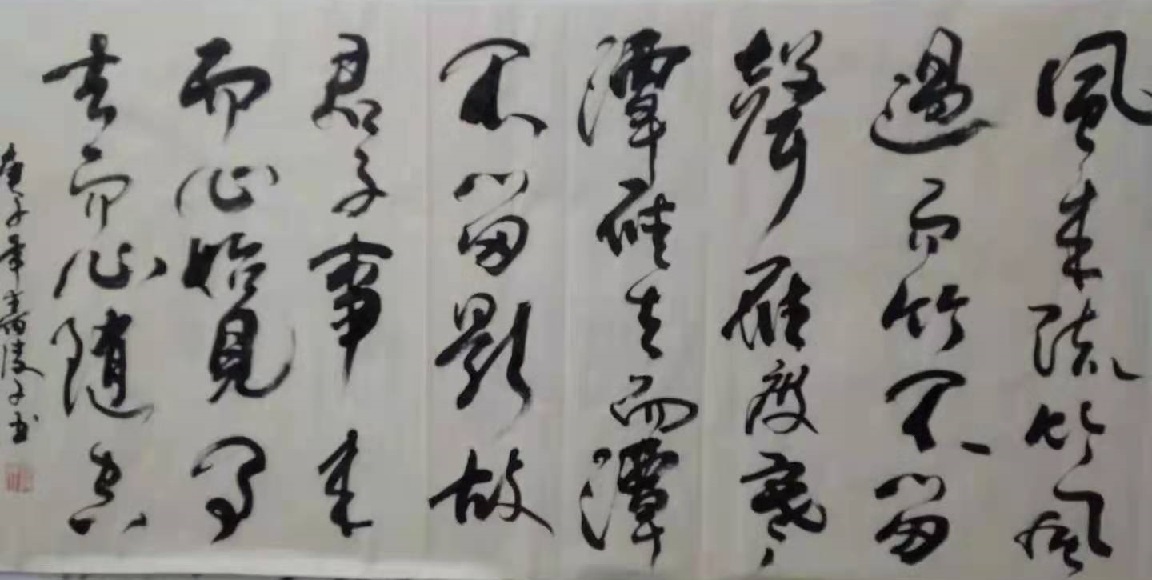 風来疏竹風
過而竹不留
聲雁度寒
潭雁去而潭
不留影故
君子事来
而心始見事
去而心随空
庚子年陵子书